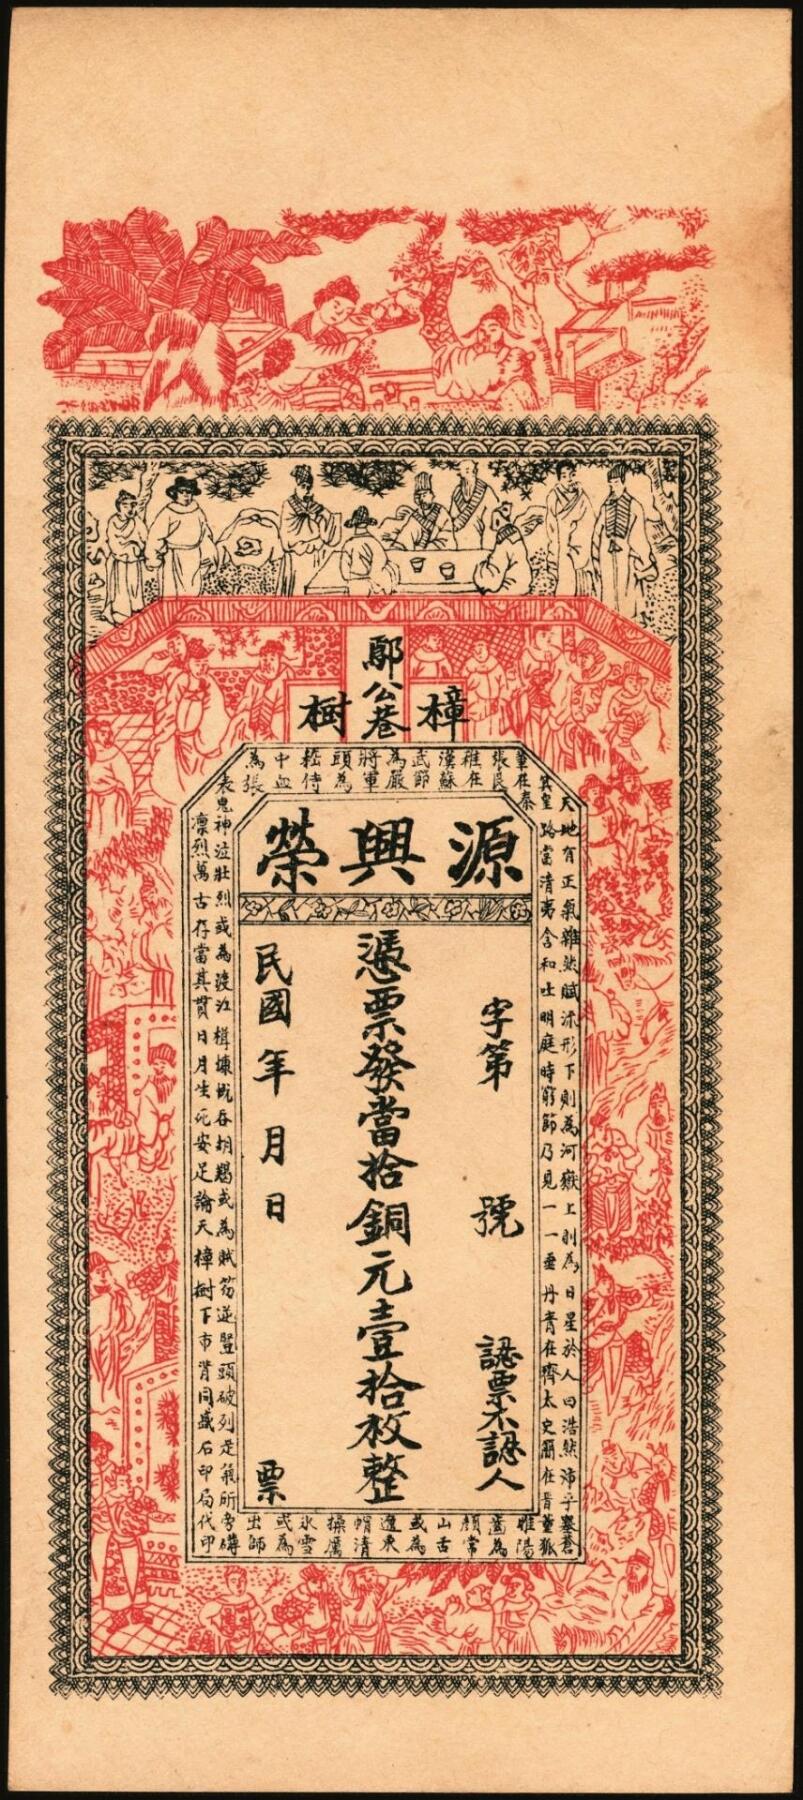 鄢公巷
樟樹
源興榮
字第 號
認票不認人
憑票發當拾銅元壹拾枚整
民國 年 月 日 票
天地有正氣雜然賦流形下則為河嶽上則為日星於人曰浩然沛乎塞蒼
冥皇路當清夷含和吐明庭時窮節乃見一一垂丹青在齊太史簡在晉董狐
筆在秦張良椎在漢蘇武節為嚴將軍頭為嵇侍中血為張
睢陽齒為顏常山舌或為遼東帽清操厲冰雪或為出師
表鬼神泣壯烈或為渡江楫慷慨吞胡羯或為賊笏逆豎頭破列是氣所旁礴
凛烈萬古存當其貫日月生死安足論天樟樹下市背同盛石印局代印